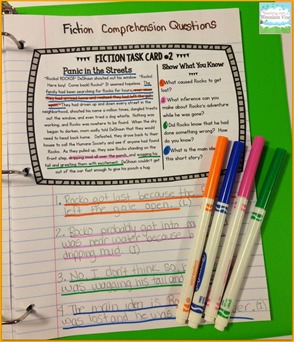 Fiction Comprehension Questions
FICTION TASK CARD #2
Panic in the Streets
"Rocko! ROCKO!" DeShaun shouted out his window. "Rocko
Here boy! Come back! Rocko!" It seemed hopeless. The
family had been searching for Rocko for hours, ever since
they had come home and realized they had left the gate
open. They had driven up and down every street in the
neighborhood, shouted his name a million times, dangled treats
out the window, and even tried a dog whistle. Nothing was
working, and Rocko was nowhere to be found. When the sky
began to darken, mom sadly told DeShaun that they would
need to head back home. Defeated, they drove back to their
house to call the Humane Society and see if anyone had found
Rocko. As they pulled up, they saw Rocko standing on the
front step, dripping mud all over the porch, and wagging his
tail and greeting them with excitement. DeShaun couldn't get
out of the car fast enough to give his pooch a hug.
Show What You Know
What caused Rocko to get
lost?
2. What inference can you
make about Rocko's adventure
while he was gone?
Did Rocko know that he had
done something wrong? How
do you know?
What is the main idea
this short story?
1. Rocko got lost because the
left the gate open. (L)
2. Rocko probably got into
was near water because
dripping mud. (I)
3. No, I don't think so
was wagging his tail and
4. The main idea is Ro
was lost and he was